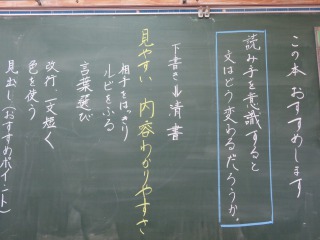 この本 おすすめします
読み手を意識すると
文はどう変わるだろうか。
下書き⇒清書
見やすい 内容わかりやすさ
相手をはっきり
ルビをふる
言葉選び
改行、文短く
色を使う
見出し(おすすめポイント)